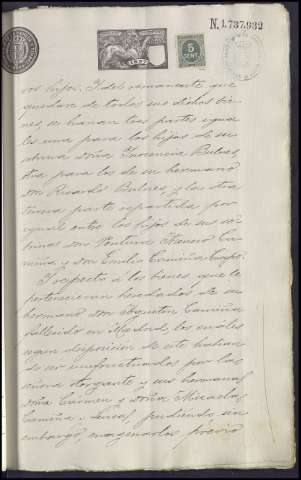 N. 1.737,932
1897
5
CENT.
ros hijos. Y del remanente que
quedare de todos sus dichos bie-
nes, se harán tres partes igua-
les una para los hijas de su
sobrina doña Inocencia Bulnes,
otra para los de su hermano
don Ricardo Bulnes, y la otra
tercera parte repartida por
igual entre los hijos de sus so-
brinos don Ventura
y don Emilio Camiña
Y respecto á los bienes que le
pertenecieran heredados de su
hermano don Agustin Camiña
fallecido en Madrid, los cuáles
segun disposición de este habian
de ser usufructuados por las
señora otorgante y sus hermanas
doña Carmen y doña Micaela
Camiña, pudiendo sin
embargo, enagenarlos previo